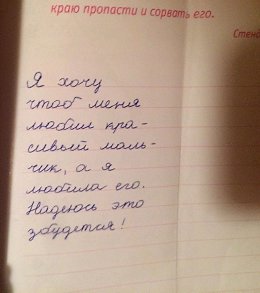 краю пропасти и сорвать его.
Стен
Я хочу
чтоб меня
любил кра-
сивый маль-
чик, а я
любила его.
Надеюсь это
збудется!